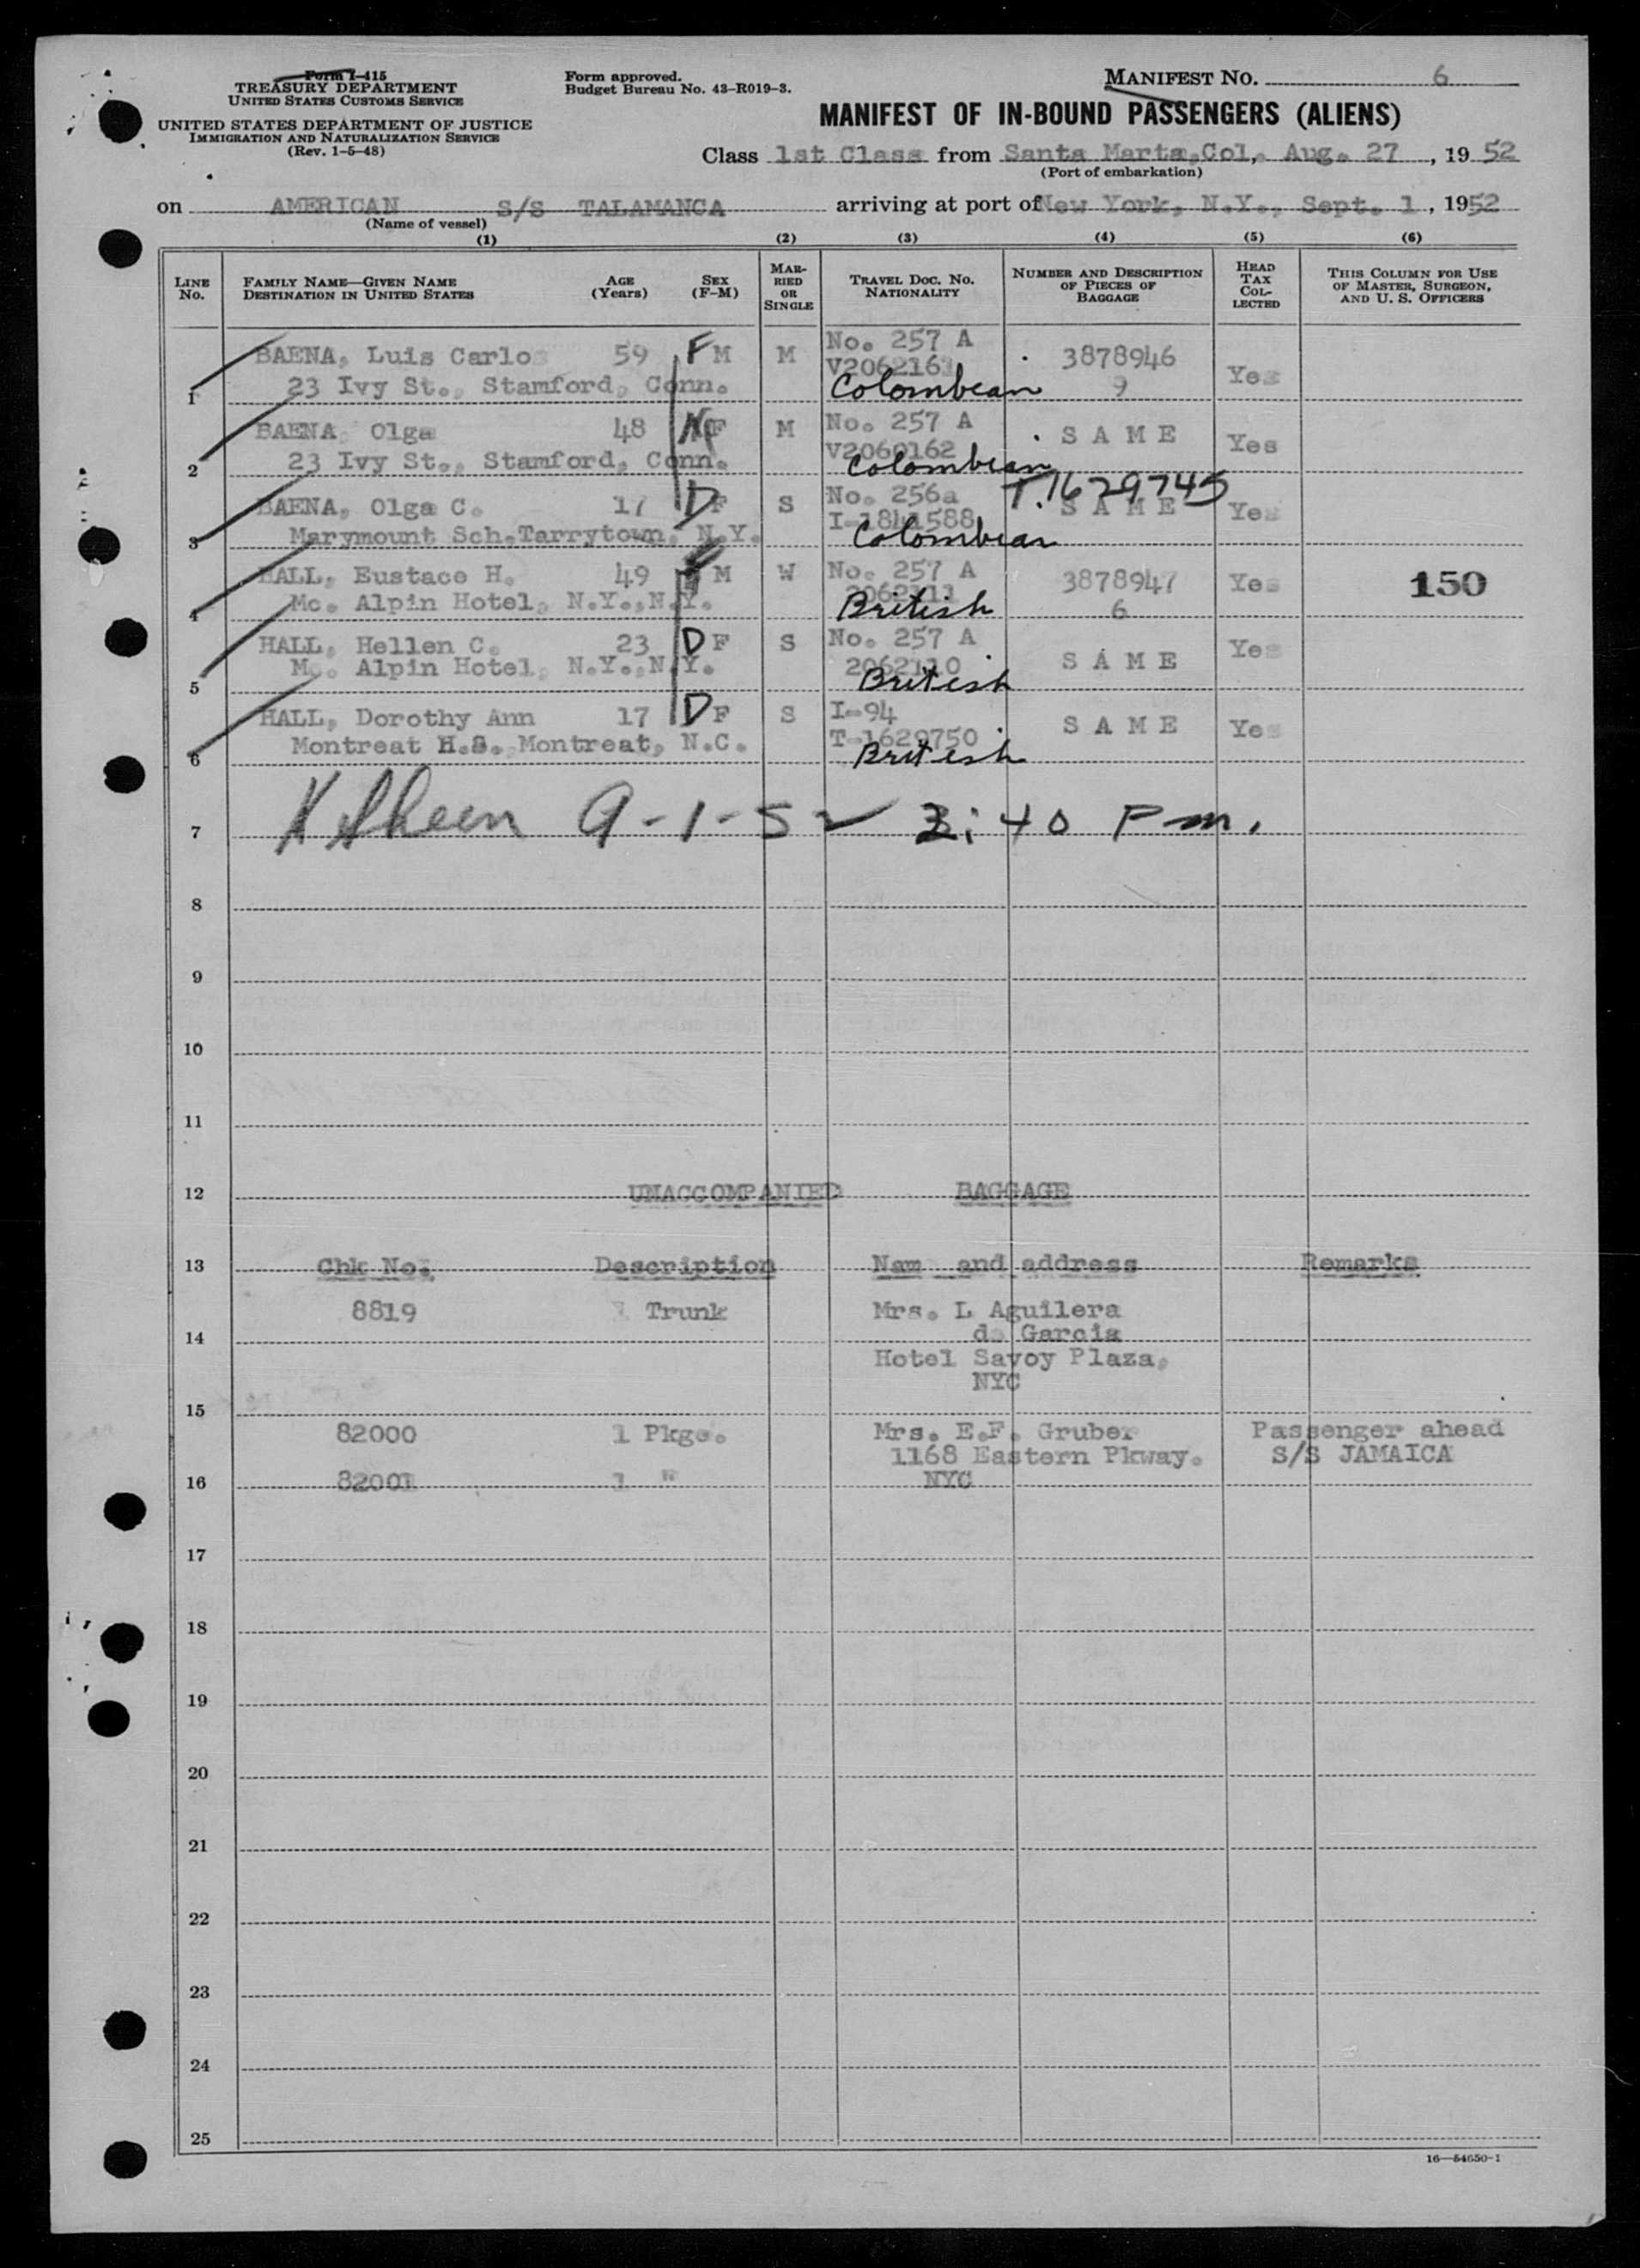 Form I-415
TREASURY DEPARTMENT
UNITED STATES CUSTOMS SERVICE
UNITED STATES DEPARTMENT OF JUSTICE
IMMIGRATION AND NATURALIZATION SERVICE
(Rev. 1-5-48)
Form approved.
Budget Bureau No. 43-R019-3.
MANIFEST NO. 6
MANIFEST OF IN-BOUND PASSENGERS (ALIENS)
Class 1st Class from Santa Marta, Col, Aug. 27, 1952
(Port of embarkation)
on AMERICAN S/S TALAMANCA arriving at port of New York, N.Y., Sept. 1, 1952
(Name of vessel)
(1) (2) (3) (4) (5) (6)
LINE No. FAMILY NAME—GIVEN NAME DESTINATION IN UNITED STATES AGE (Years) SEX (F-M) MARRIED OR SINGLE TRAVEL DOC. NO. NATIONALITY NUMBER AND DESCRIPTION OF PIECES OF BAGGAGE HEAD TAX COLLECTED THIS COLUMN FOR USE OF MASTER, SURGEON, AND U. S. OFFICERS
1 BAENA, Luis Carlos 59 F M M No. 257 A 3878946 Yes
23 Ivy St., Stamford, Conn. V2062163 Colombean 9
2 BAENA, Olga 48 F M No. 257 A SAME Yes
23 Ivy St., Stamford, Conn. V2060162 Colombean
3 BAENA, Olga C. 17 D F S No. 256a T.1629745 SAME Yes
Marymount Sch. Tarrytown, N.Y. I-1841588 Colombean
4 HALL, Eustace H. 49 M W No. 257 A 3878947 Yes 150
Mc. Alpin Hotel, N.Y., N.Y. 2062111 British 6
5 HALL, Hellen C. 23 D F S No. 257 A SAME Yes
Mc. Alpin Hotel, N.Y., N.Y. 2062110 British
6 HALL, Dorothy Ann 17 D F S I-94 SAME Yes
Montreat H.S. Montreat, N.C. T-1629750 British
7 K Sheen 9-1-52 3:40 Pm.
8
9
10
11
12 UNACCOMPANIED BAGGAGE
13 Chk No. Description Name and address Remarks
8819 1 Trunk Mrs. L Aguilera
14 de Garcia
Hotel Savoy Plaza,
NYC
15
82000 1 Pkge. Mrs. E.F. Gruber Passenger ahead
1168 Eastern Pkway. S/S JAMAICA
16 82001 1 " NYC
17
18
19
20
21
22
23
24
25
16—54650-1